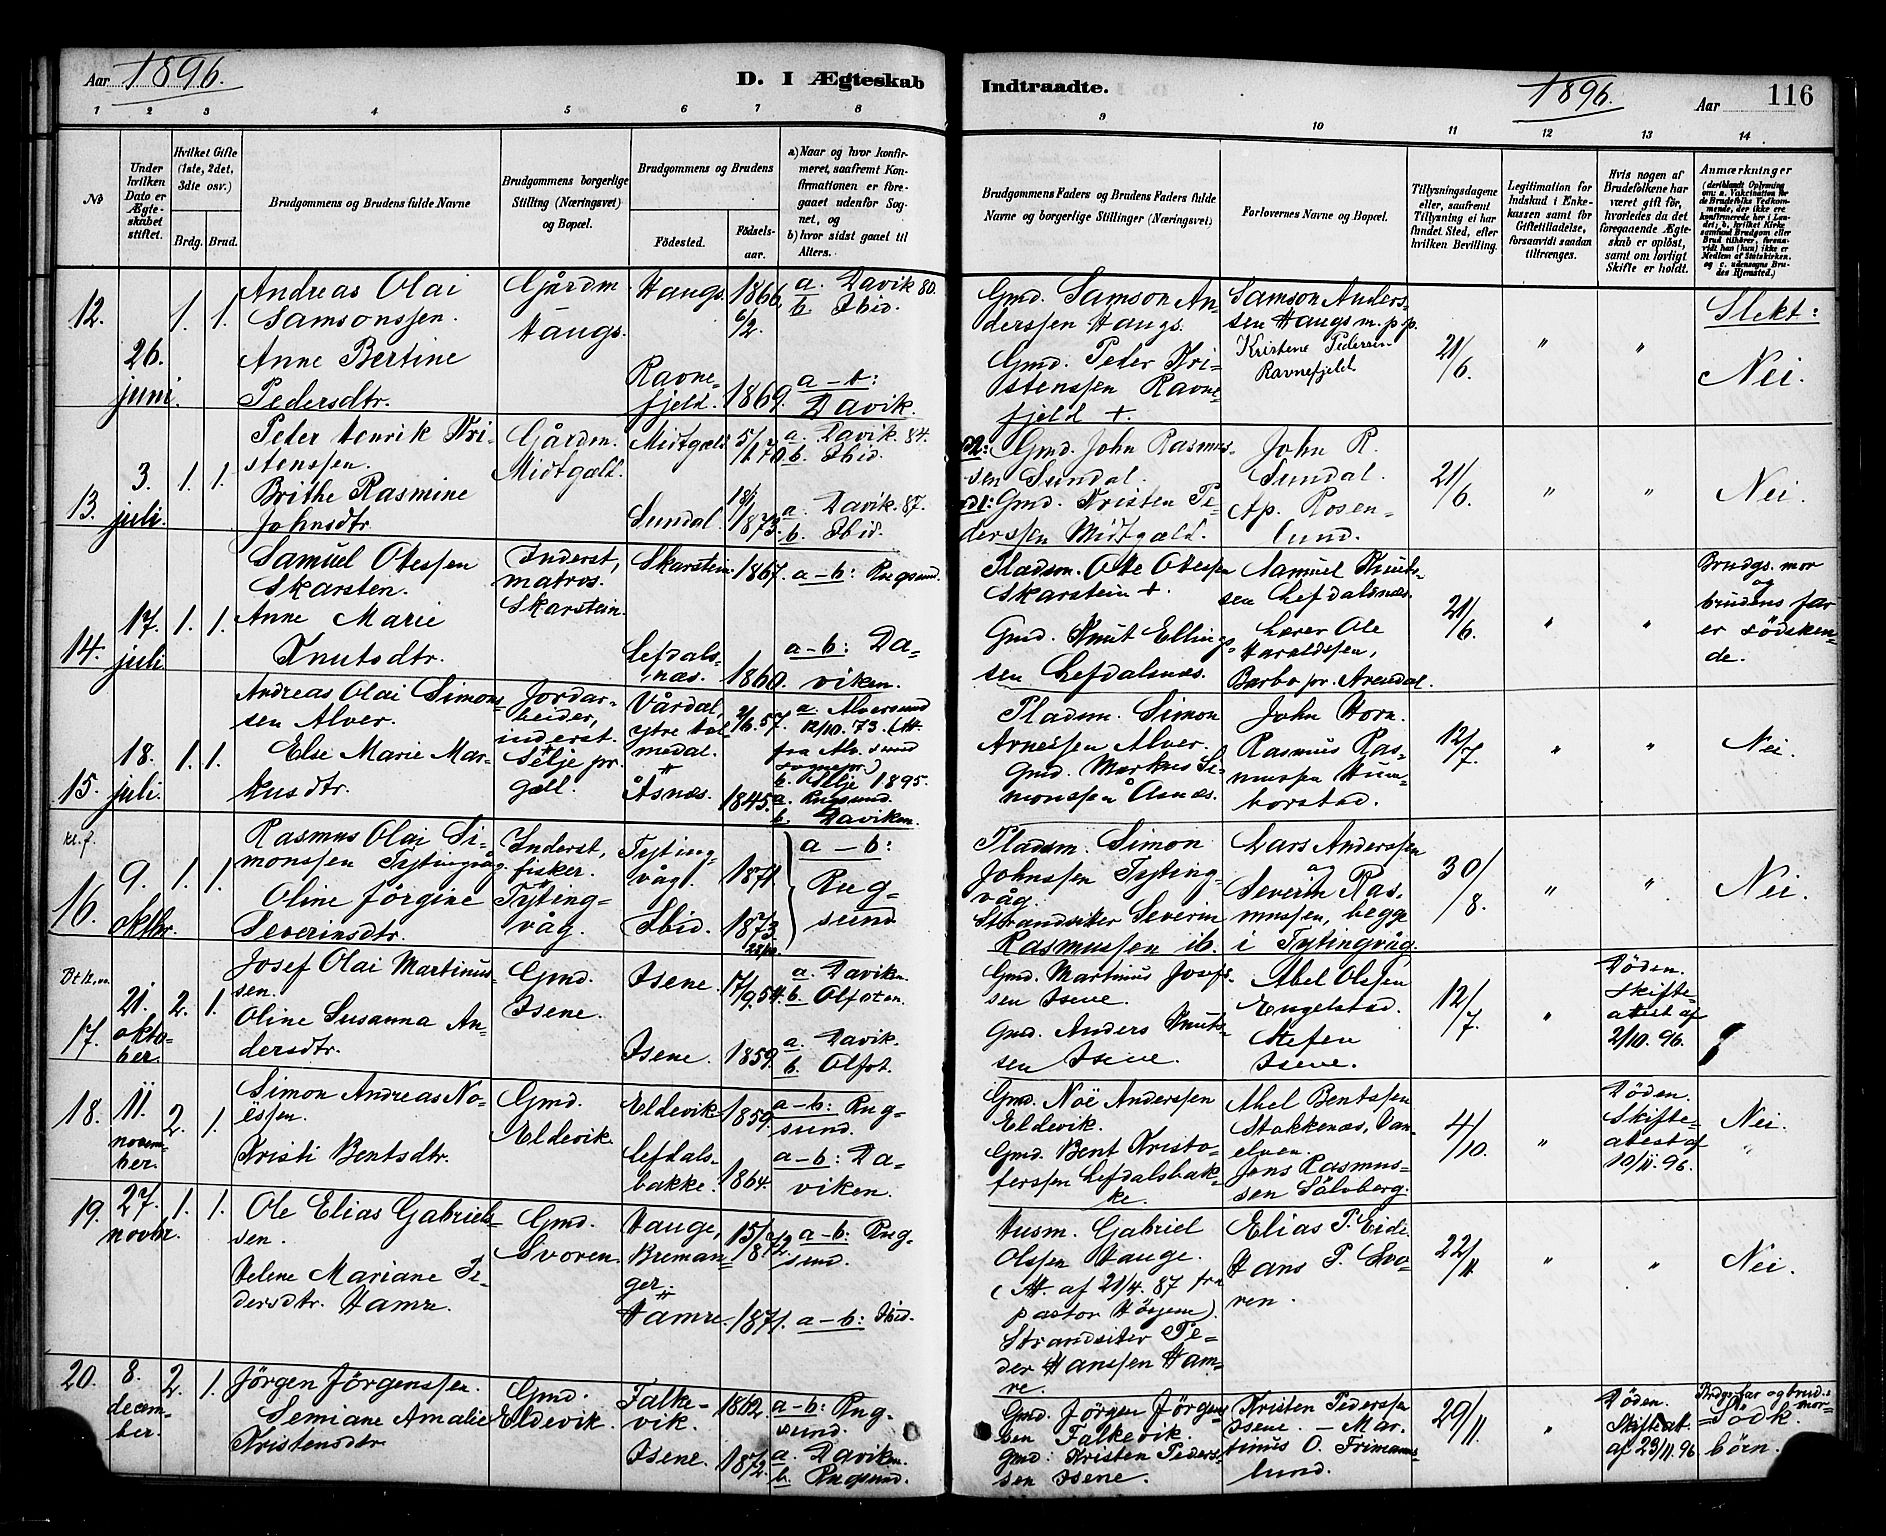 Aar 1896.
D. I Ægteskab
Indtraadte.
1896. Aar 116
1 2 3 4 5 6 7 8
9 10 11 12 13 14
No
Under hvilken Dato er Ægteskabet stiftet.
Hvilket Gifte (1ste, 2det, 3die osv.)
Brdg. Brud.
Brudgommens og Brudens fulde Navne
Brudgommens borgerlige Stilling (Næringsvei) og Bopæl.
Brudgommens og Brudens
Fødested. Fødselsaar.
a) Naar og hvor konfirmeret, saafremt Konfirmationen er foregaaet udenfor Sognet, og
b) hvor sidst gaaet til Alters.
Brudgommens Faders og Brudens Faders fulde Navne og borgerlige Stillinger (Næringsvei)
Forlovernes Navne og Bopæl.
Tillysningsdagene eller, saafremt Tillysning ei har fundet Sted, efter hvilken Bevilling.
Legitimation for Indskud i Enkekassen samt for Giftetilladelse, forsaavidt saadan tiltrænges.
Hvis nogen af Brudefolkene har været gift før, hvorledes da det foregaaende Ægteskab er opløst, samt om lovligt Skifte er holdt.
Anmærkninger
(deriblandt Oplysning om: a. Vaksination for de Brudefolks Vedkommende, der ikke ere konfirmerede her i Landet; b. hvilket Kirkesamfund Brudgom eller Brud tilhører, forsaavidt han (hun) ikke er Medlem af Statskirken, og c. udensogns Brudes Hjemsted.)
12. 26. juni. 1. 1.
Andreas Olai
Samsonssen.
Anne Bertine
Pedersdtr.
Gårdm.
Haugs.
Haugs. 1866 6/2
Ravnefjeld. 1869.
a. Davik 80.
b. Ibid.
a-b:
Davik.
Gmd. Samson Anderssen Haugs.
Gmd. Peder Kristenssen Ravnefjeld +
Samson Anderssen Haugs m.p.p.
Kristene Pedersen
Ravnefjeld
21/6.
" "
Slekt:
Nei.
13. 3. juli. 1. 1.
Peder Henrik Kristenssen.
Brithe Rasmine
Johnsdtr
Gårdm.
Midtgæld.
Midtgæld 5/1 70
Sundal. 18/1 1873.
a. Davik. 84.
b. Ibid.
a. Davik. 87.
b. Ibid.
Gmd. John Rasmussen Sundal.
Gmd. Kristen Pederssen Midtgæld.
John R.
Sundal.
Ap. Rosenlund.
21/6.
" "
Nei.
14. 17. juli 1. 1.
Samuel Otessen
Skarsten.
Anne Marie
Knutsdtr.
Inderst,
matros.
Skarstein.
Skarstein. 1867.
Lefdalsnæs. 1860.
a-b: Rugsund.
a-b: Daviken.
Pladsm. Ote Otessen
Skarstein +.
Gmd. Knut Ellingssen Lefdalsnæs.
Samuel Knutssen Lefdalsnæs.
Lærer Ole
Haraldssen,
Barbo pr. Arendal.
21/6.
" "
Brudgs. mor
og
brudens far
er södskende.
15. 18. juli. 1. 1.
Andreas Olai Simonssen Alver.
Else Marie Markusdtr.
Jordarbeider,
inderst.
Selje pr.
gæll.
Vårdal,
ytre Holmedal.
Åsnæs.
2/6. 57.
1845.
a. Alversund
12/10. 73. (Att.
fra Alv. sund
sognepr.)
b. Selje 1895.
a. Rugsund.
b. Daviken.
Pladsm. Simon
Arnessen Alver.
Gmd. Markus Simonssen Åsnæs.
John Horn.
Rasmus Rasmussen Humborstad.
12/7.
" "
Nei.
Kl. f.
16. 9. oktbr. 1. 1.
Rasmus Olai Simonssen Tytingvåg.
Oline Jörgine
Severinsdtr.
Inderst,
fisker.
Tytingvåg.
Tytingvåg. 1871.
Ibid. 1873
a-b:
Rugsund
Pladsm. Simon
Johnssen Tytingvåg.
Strandsiter Severin
Rasmussen ib.
Lars Anderssen
og
Severin Rasmussen, begge
i Tytingvåg.
30/8.
" "
Nei.
17. 21. oktober. 2. 1.
Josef Olai Martinussen.
Oline Susanna Andersdtr.
Gmd.
Isene.
Isene. 17/9. 54.
Isene. 1859.
a. Daviken
b. Olfoten.
a. Davik.
b. Olfot.
Gmd. Martinus Josefssen Isene.
Gmd. Anders Knutssen Isene.
Abel Olssen
Engelstad.
Stefen
Isene.
12/7.
"
Döden.
Skifteattest af
2/10. 96.
18. 11. november. 2. 1.
Simon Andreas Noëssen.
Kristi Bentsdtr.
Gmd.
Eldevik.
Eldevik 1859.
Lefdalsbakke. 1864.
a-b: Rugsund.
a-b: Daviken.
Gmd. Noë Anderssen
Eldevik.
Gmd. Bent Kristoferssen Lefdalsbakke.
Abel Bentssen
Stokkenæs, Vanelven.
Jons Rasmussen Sålvberg.
4/10.
"
Döden.
Skifteatest af
10/11. 96.
Nei.
"
19. 27. novbr. 1. 1.
Ole Elias Gabrielssen.
Helene Mariane Pedersdtr. Hamre.
Gmd.
Svoren.
Hauge,
Bremanger.
Hamre. 1871.
a-b: Rugsund.
a-b: Ibid.
Husm. Gabriel
Olssen Hauge.
(Att. af 21/4. 87 fra
pastor Hörgene)
Strandsiter Peder Hanssen Hamre.
Elias P. Eide
Hans P. Svoren.
22/11
" "
Nei.
20. 8. december. 2. 1.
Jörgen Jörgenssen.
Semiane Amalie
Kristensdtr.
Gmd.
Eldevik.
Falkevik. 1862.
Isene. 1872.
a-b: Rugsund.
a. Daviken.
b. Rugsund.
Gmd. Jörgen Jörgenssen Falkevik.
Gmd. Kristen Pederssen Isene.
Kristen Pederssen
Isene. — Martinus O. Frimannslund.
29/11.
"
Döden.
Skifteat.
af 23/11. 96
Brdgs far og brud.s mor
= Södk.
börn.